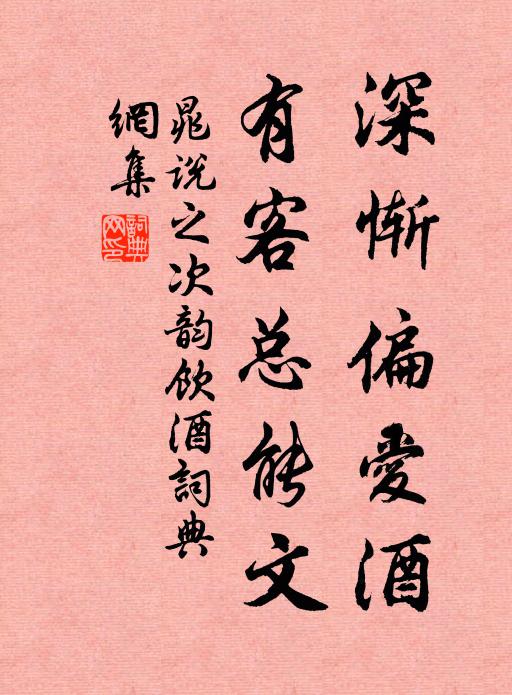 深惭偏愛酒
有客总能文
晁説之次韵飲酒詞典
網集
詞典網印